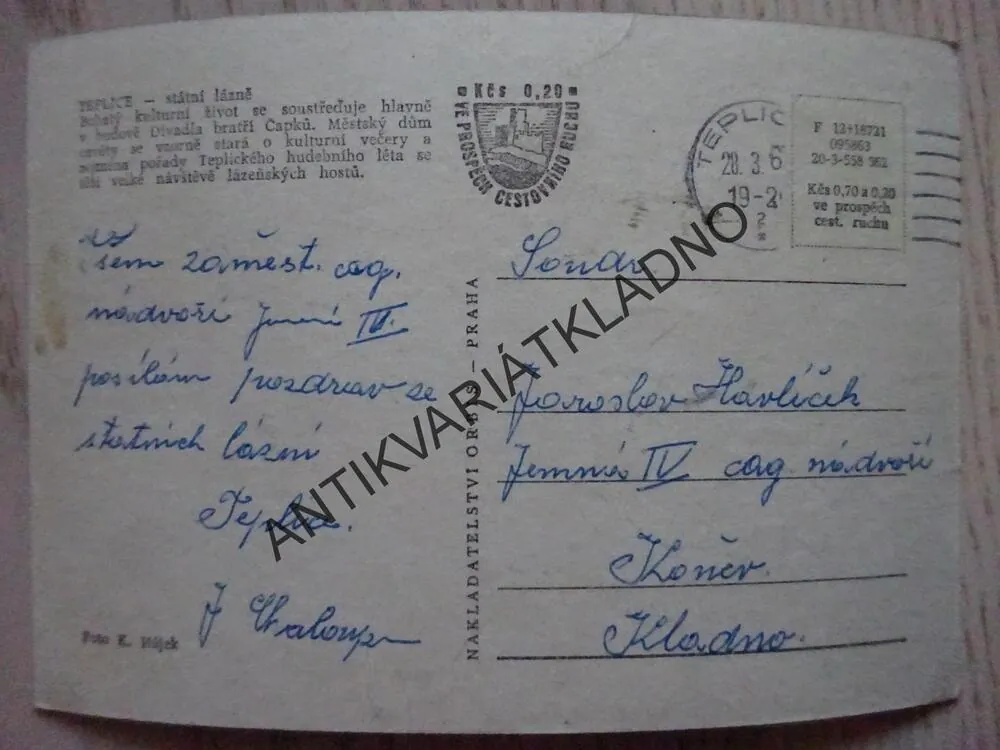 TEPLICE — státní lázně
Bohatý kulturní život se soustřeďuje hlavně
v budově Divadla bratří Čapků. Městský dům
osvěty se vzorně stará o kulturní večery a
zejména pořady Teplického hudebního léta se
těší velké návštěvě lázeňských hostů.
Kčs 0,20
VE PROSPĚCH CESTOVNÍHO RUCHU
TEPLIC
20.3.6
19-2
2
F 12+18721
095863
20-3-558 562
Kčs 0,70 a 0,20
ve prospěch
cest. ruchu
všem zaměst. cag.
nádvoří IV.
posílám pozdrav ze
státních lázní
Teplice.
J
Foto K. Hájek
NAKLADATELSTVÍ ORBIS — PRAHA
Soudr.
Jaroslav Havlíček
Jemná IV cag nádvoří
Koněv.
Kladno.
ANTIKVARIÁTKLADNO